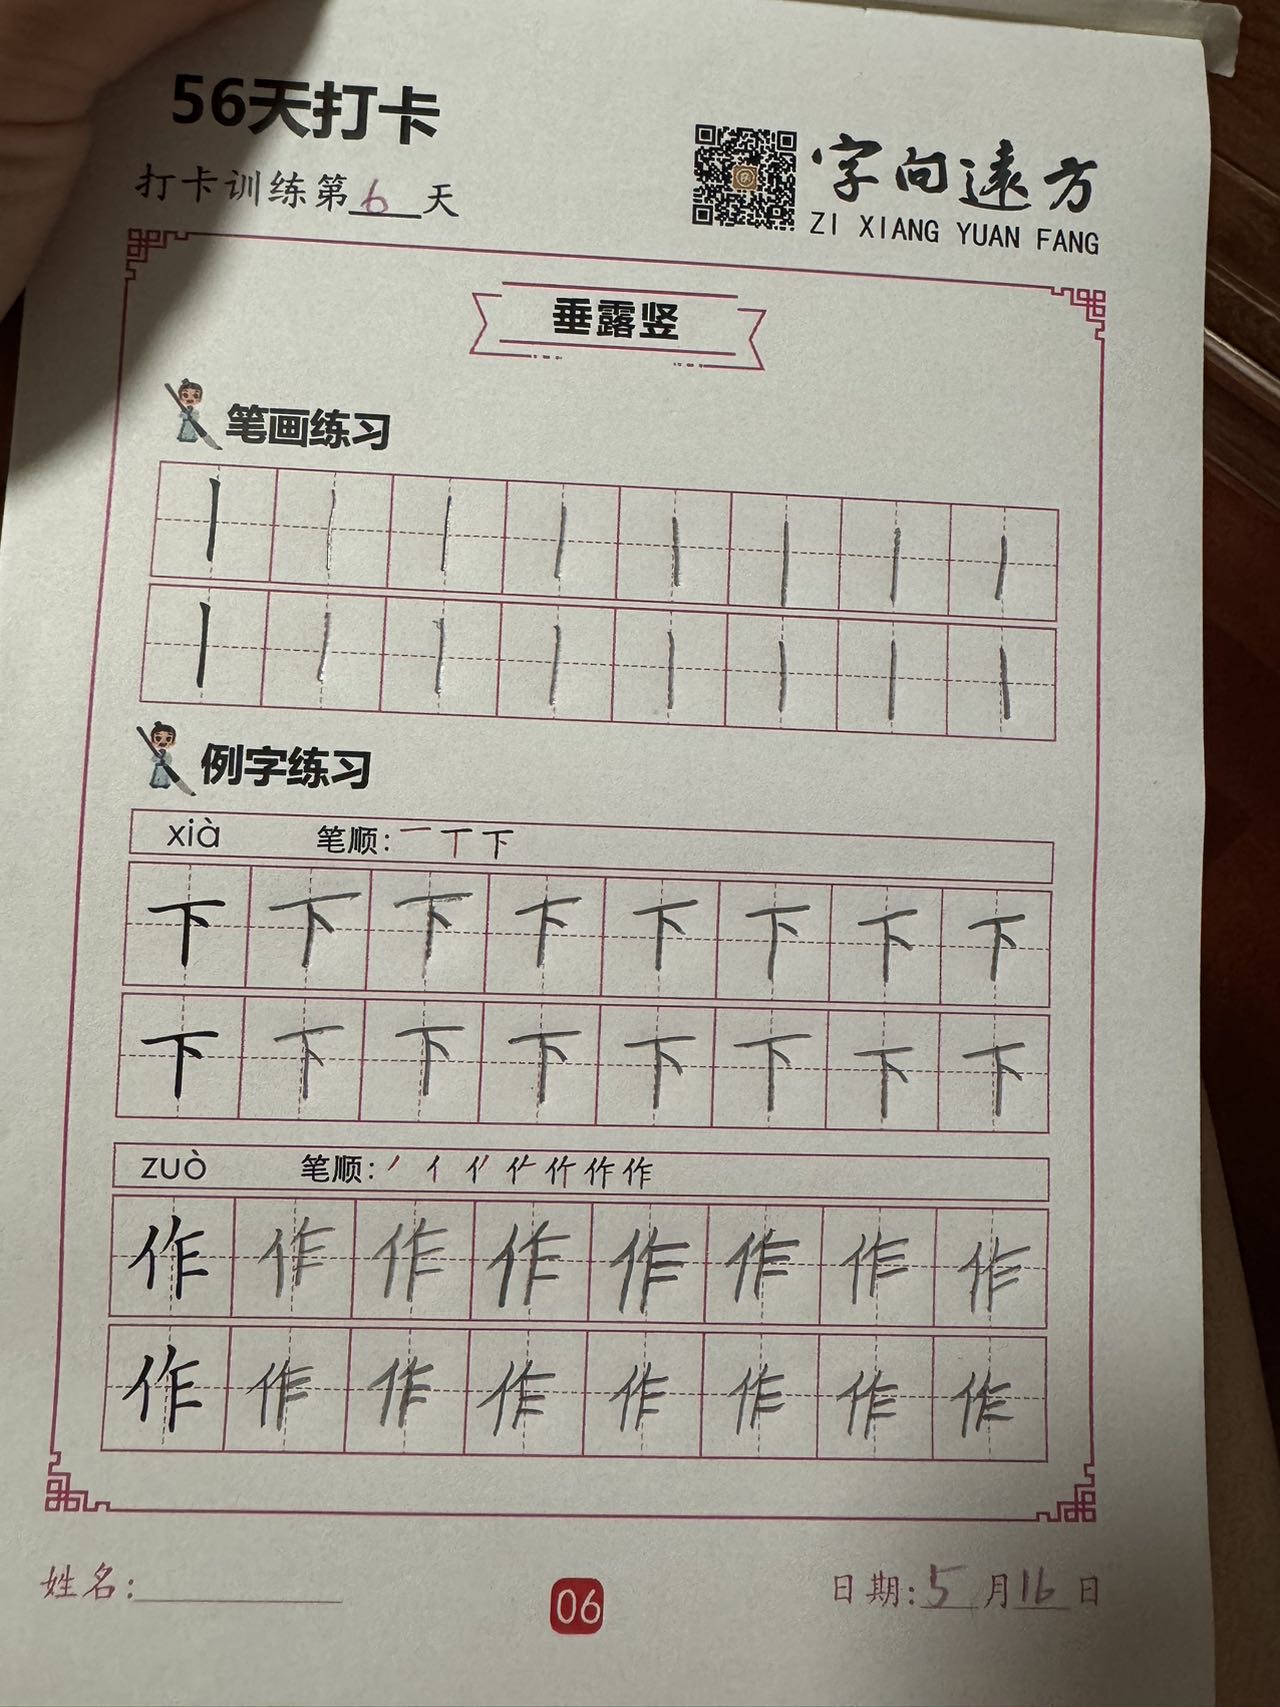 56天打卡
打卡训练第6天
字向遠方
ZI XIANG YUAN FANG
垂露竖
笔画练习
丨丨丨丨丨丨丨丨
丨丨丨丨丨丨丨丨
例字练习
xià 笔顺:一丅下
下下下下下下下下
下下下下下下下下
zuò 笔顺:丿亻作作
作作作作作作作作
作作作作作作作作
姓名:
06
日期:5月16日